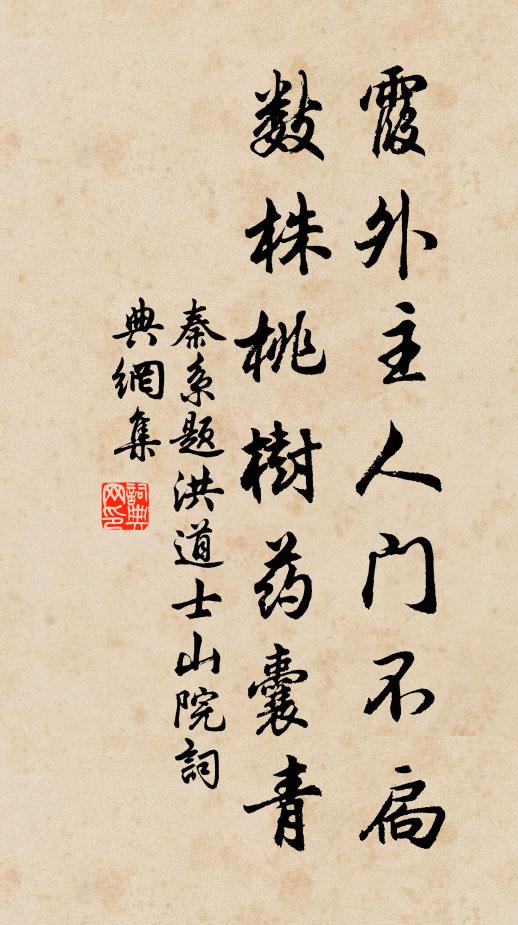 霞外主人门不扃
数株桃樹药囊青
秦系题洪道士山院詞
典網集
詞典
网印